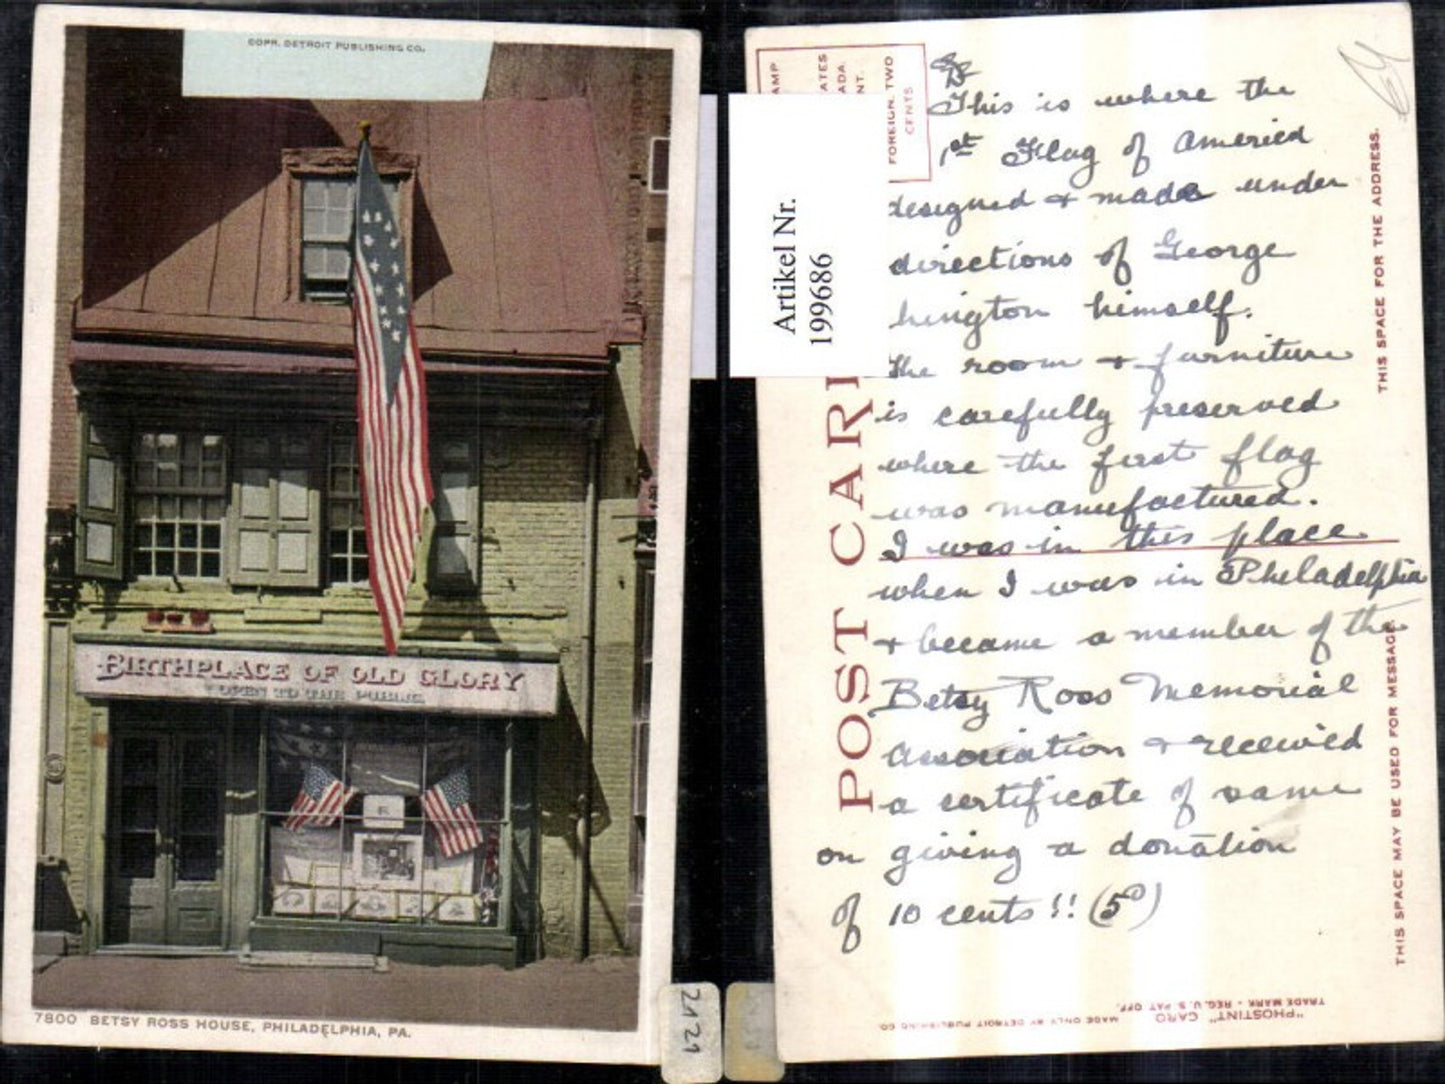 COPR. DETROIT PUBLISHING CO.
BIRTHPLACE OF OLD GLORY
OPEN TO THE PUBLIC
7800 BETSY ROSS HOUSE, PHILADELPHIA, PA.
2121
AMP
ATES
ADA
NT.
FOREIGN, TWO
CENTS
Artikel Nr.
199686
POST CAR
THIS SPACE FOR THE ADDRESS.
THIS SPACE MAY BE USED FOR MESSAGE.
This is where the
1st Flag of America
designed + made under
directions of George
hington himself.
The room + furniture
is carefully preserved
where the first flag
was manufactured.
I was in this place
when I was in Philadelphia
+ became a member of the
Betsy Ross Memorial
Association + received
a certificate of same
on giving a donation
of 10 cents!! (5⁰)
"PHOSTINT" CARD
TRADE MARK - REG. U. S. PAT. OFF.
MADE ONLY BY DETROIT PUBLISHING CO.